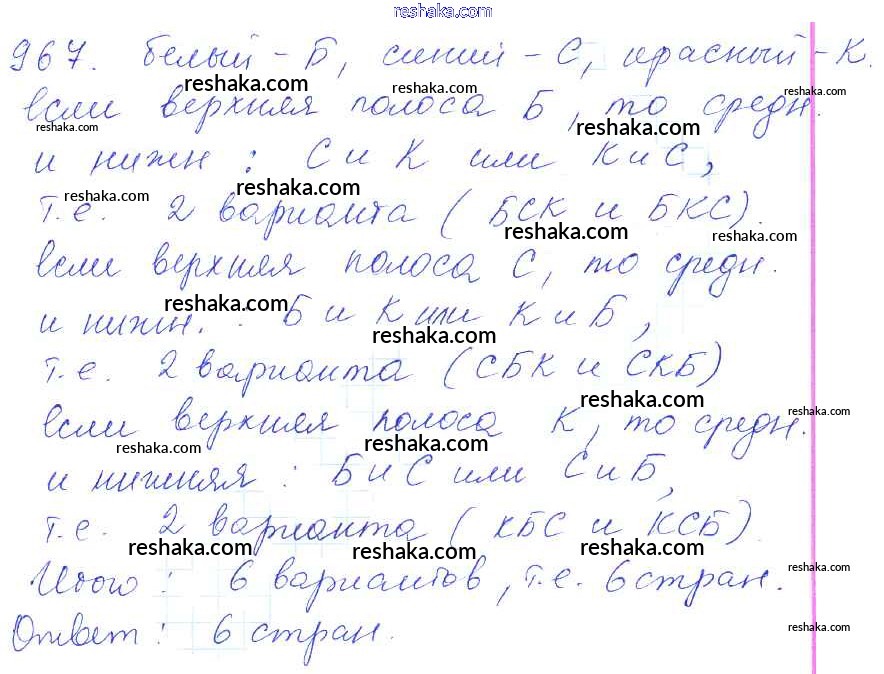 reshaka.com
967. белый - Б, синий - С, красный - К.
reshaka.com
reshaka.com
если верхняя полоса Б, то средн.
reshaka.com
reshaka.com
и нижн : С и К или К и С,
reshaka.com
reshaka.com
т.е. 2 варианта (БСК и БКС).
reshaka.com
reshaka.com
если верхняя полоса С, то средн.
reshaka.com
и нижн. : Б и К или К и Б,
reshaka.com
т.е. 2 варианта (СБК и СКБ)
reshaka.com
reshaka.com
если верхняя полоса К, то средн.
reshaka.com
reshaka.com
и нижняя : Б и С или С и Б,
т.е. 2 варианта (КБС и КСБ)
reshaka.com
reshaka.com
reshaka.com
Итого : 6 вариантов, т.е. 6 стран.
reshaka.com
Ответ : 6 стран.
reshaka.com